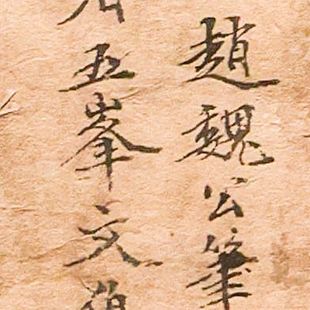 趙魏公筆
五峯文